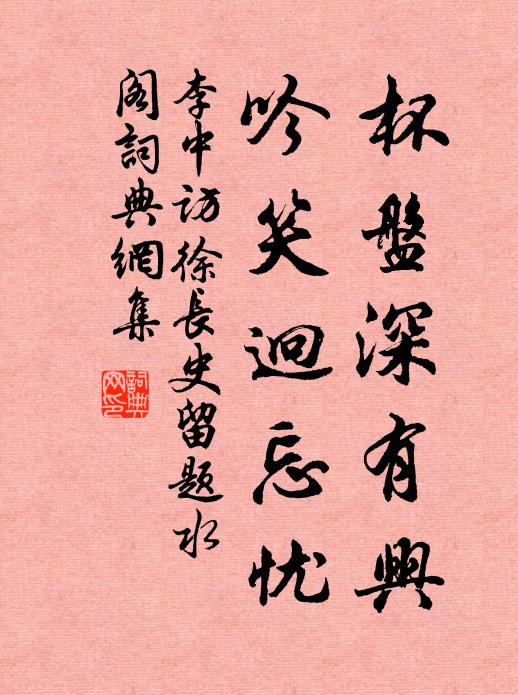 杯盤深有興
吟笑迥忘忧
李中訪徐長史留題水
阁詞典網集
詞典
网印